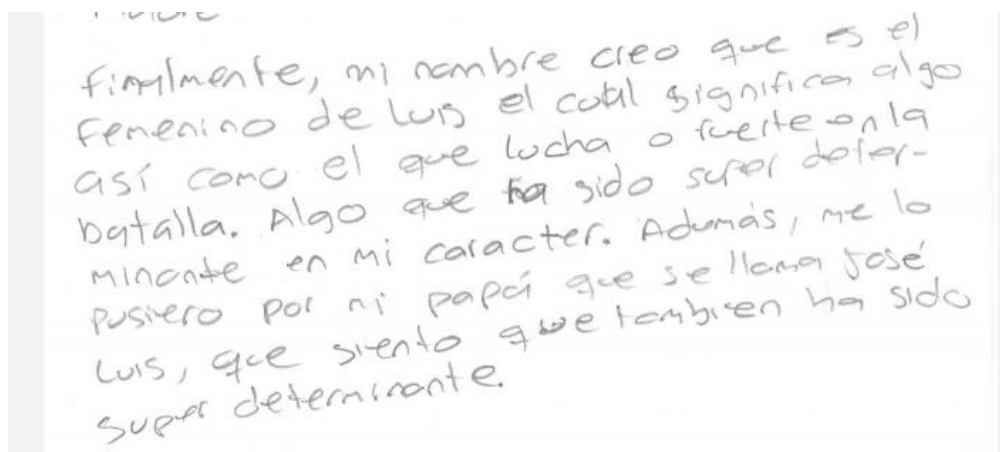 finalmente, mi nombre creo que es el
femenino de Luis el cual significa algo
así como el que lucha o fuerte en la
batalla. Algo que ha sido super deter-
minante en mi caracter. Además, me lo
pusiero por mi papá que se llama José
Luis, que siento que tambien ha sido
super determinante.